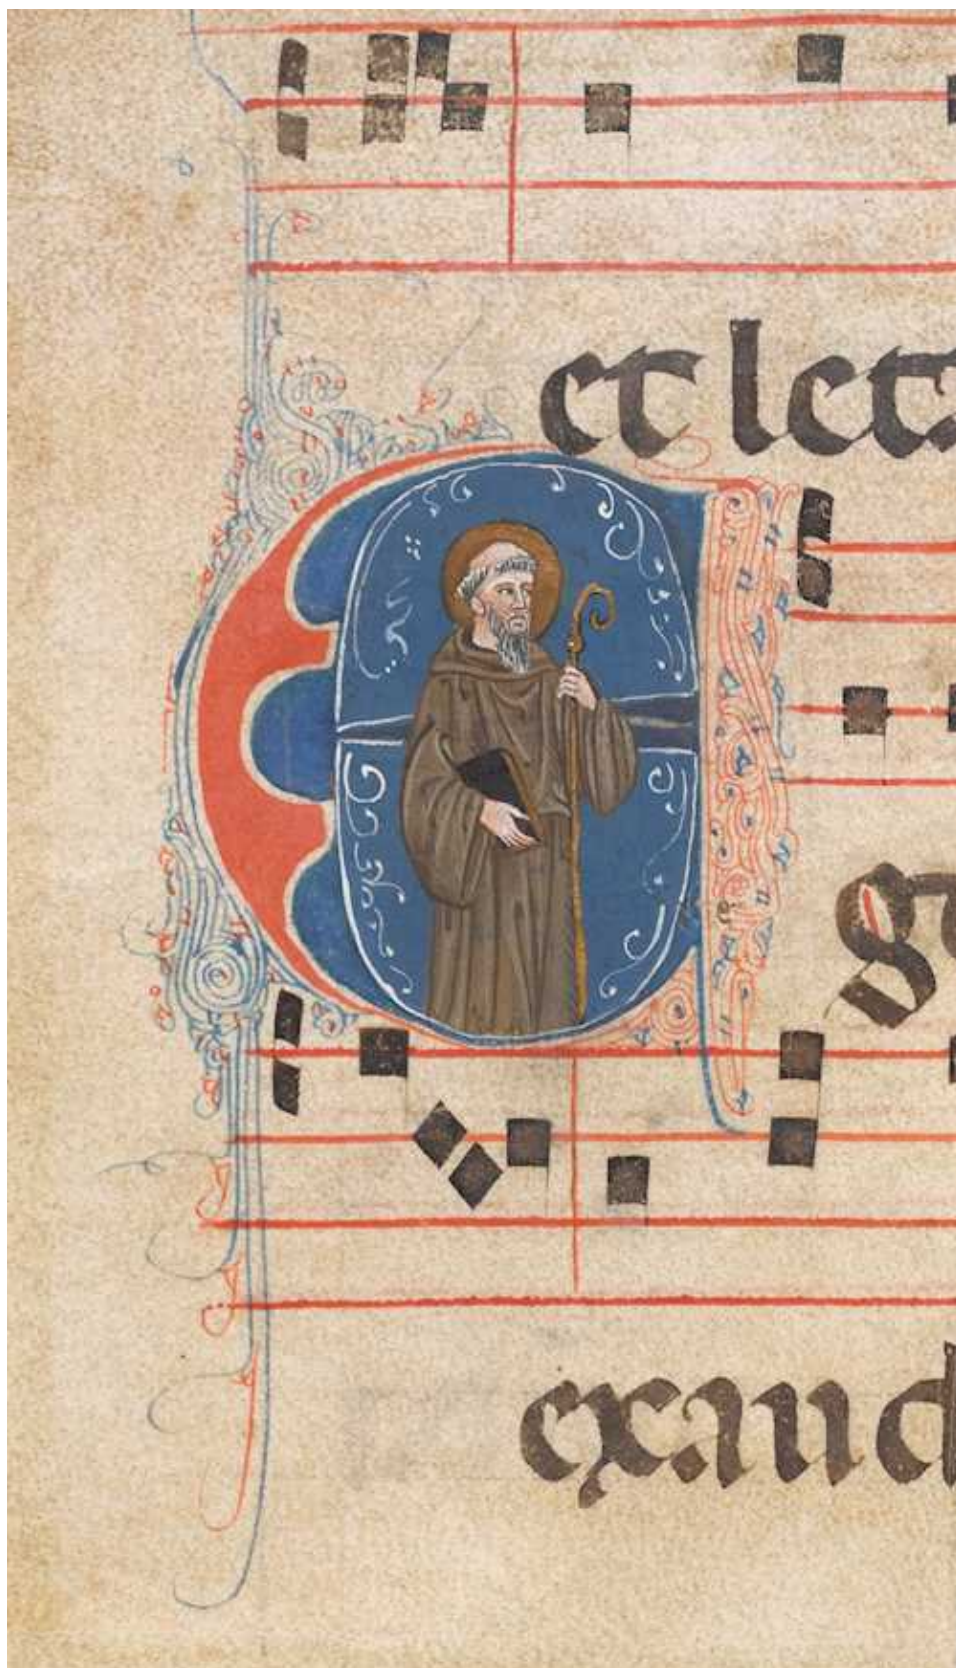 et let
E
exaud